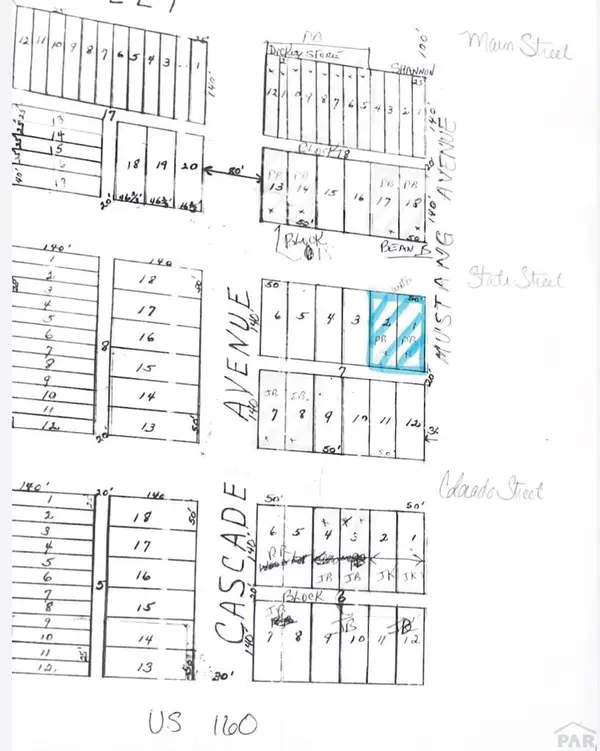 25'
12 11 10 9 8 7 6 5 4 3 1
140'
DICKEY STORE
SHANNON
100'
Main Street
25'
12 11 10 9 8 7 6 5 4 3 2 1
140'
17
13
14
15
17
40' 25' 25' 25'
18 19 20
20'
80'
20'
13 14 15 16 17 18
PB PB PB PB
140'
50'
50'
Block
BEAN B
MUSTANG AVENUE
State Street
140'
1
2
3
4
5
6
7
8
9
10
11
12
8
20'
140
18
17
16
15
14
13
50'
AVENUE
140'
140'
50
6 5 4 3 2 1
PB PB
7
20'
JB JB
7 8 9 10 11 12
50'
50'
Colorado Street
140'
1
2
3
4
5
6
7
8
9
10
11
12
25'
20'
5
140
50'
18
17
16
15
14
13
50'
CASCADE
140'
20'
140'
80'
50'
50'
6 5 4 3 2 1
JB JB JK JK
BLOCK 6
JB JB
7 8 9 10 11 12
US 160
PAR